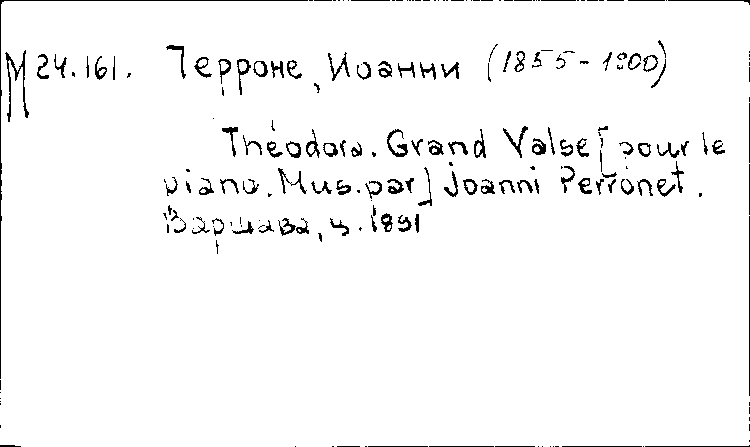 М 24.161. Перроне, Иоанни (1855-1900)
Théodora. Grand Valse [pour le
piano. Mus. par] Joanni Perronet.
Варшава, ц. 1891